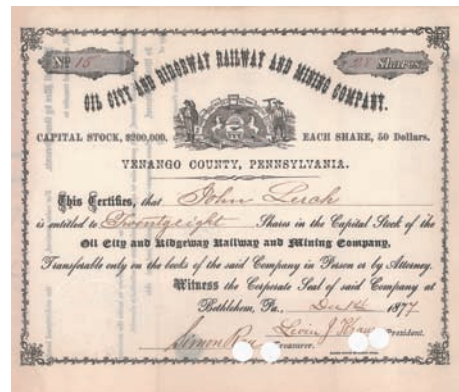 No 15
28 Shares
OIL CITY AND RIDGEWAY RAILWAY AND MINING COMPANY.
CAPITAL STOCK, $200,000. EACH SHARE, 50 Dollars.
VENANGO COUNTY, PENNSYLVANIA.
This Certifies, that John Lerch
is entitled to Twentyeight Shares in the Capital Stock of the
Oil City and Ridgeway Railway and Mining Company,
Transferable only on the books of the said Company in Person or by Attorney.
Witness the Corporate Seal of said Company at
Bethlehem, Pa., Dec 1877
Levin J. President.
Simon Treasurer.